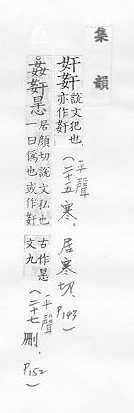 集韻
奸姧說文犯也
亦作姧
(平聲二十五寒,居寒切,P.143)
姦姧居顏切說文犯也
一曰偽也或作姧
古作
文九
(平聲二十七刪,P152)